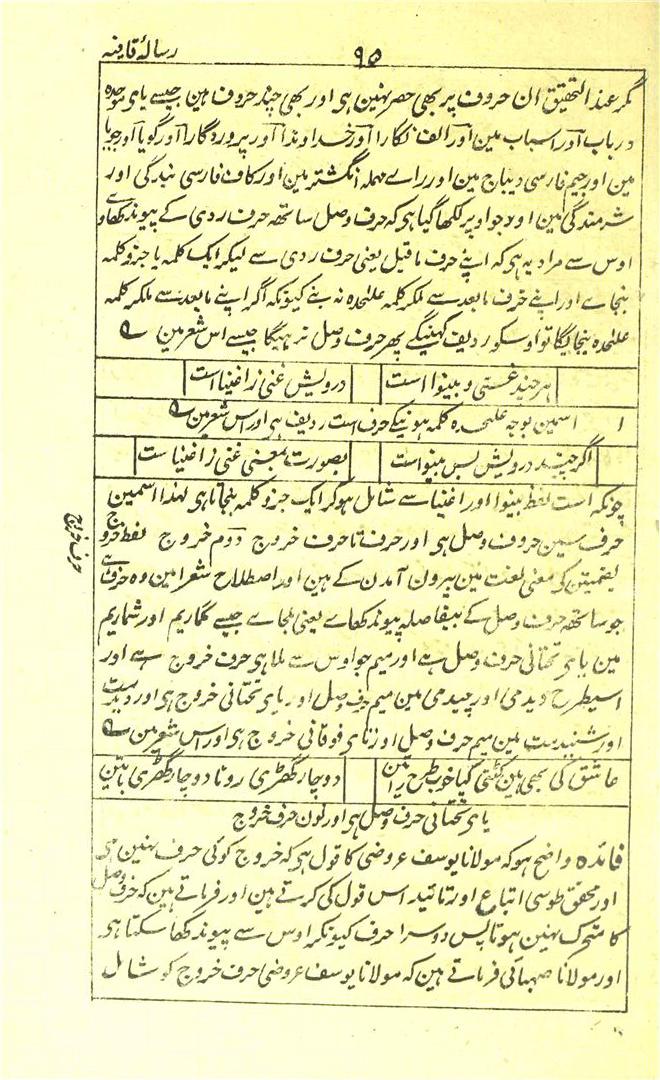 ۹۵
رسالۂ قافیہ
مگر عند التحقیق ان حروف پر بھی حصر نہین ہی اور بھی چند حروف ہین جیسے یای موحدہ
درباب اور اسباب مین اور الف نکارا اور خداوندا اور پروردگارا اور گویا اور جویا
مین اور جیم فارسی دیباج مین اور راے مہملہ انگشتر مین اور کاف فارسی بندگی اور
شرمندگی مین اور جو اوپر لکھا گیا ہی کہ حرف وصل ساتھ حرف ردی کے پیوند کھاوے
اوس سے مراد یہ ہی کہ اپنے حرف ماقبل یعنی حرف ردی سے لیکر ایک کلمہ یا جزو کلمہ
بنجاے اور اپنے حرف مابعد سے ملکر کلمہ علٰحدہ نہ بنے کیونکہ اگر اپنے مابعد سے ملکر کلمہ
علٰحدہ بنجائیگا تو اوسکو ردیف کہینگے پھر حرف وصل نہ رہیگا جیسے اس شعر مین ؎
ہر چند غستی و بینوا است درویش غنی ز اغنیا است
اسمین بوجہ علٰحدہ کلمہ ہونیکے حرف است ردیف ہی اور اس شعر مین ؎
اگر چند درویش بس بینواست بصورت بمعنی غنی ز اغنیاست
چونکہ است لفظ بینوا اور اغنیا سے شامل ہوکر ایک جزو کلمہ بنجاتا ہی لہذا اسمین
حرف سین حروف وصل ہی اور حرف تا حرف خروج دوم خروج لفظ خروج
حرف خروج
بضمتین کی معنی لغت مین بیرون آمدن کے ہین اور اصطلاح شعرا مین وہ حرف ہے
جو ساتھ حرف وصل کے بیفاصلہ پیوند کھاے یعنی ملجاے جیسے گماریم اور شماریم
مین یای تحتانی حرف وصل ہے اور میم جو اوس سے ملا ہی حرف خروج ہے اور
اسیطرح دیدمی اور چیدمی مین میم حرف وصل اور یای تحتانی خروج ہی اور دیدمست
اور شنیدمست مین میم حرف وصل اور تای فوقانی خروج ہی اور اس شعر مین ؎
عاشق کی بھی ہین کٹتی کیا خوب طرح راتین دو چار گھڑی رونا دو چار گھڑی باتین
یای تحتانی حرف وصل ہی اور نون حرف خروج
فائدہ واضح ہو کہ مولانا یوسف عروضی کا قول ہی کہ خروج کوئی حرف نہین ہی
اور محقق طوسی اتباع اور تائید اس قول کی کرتے ہین اور فرماتے ہین کہ حرف وصل
کا متحرک نہین ہوتا پس دوسرا حرف کیونکر اوس سے پیوند کھا سکتا ہی
اور مولانا صہبائی فرماتے ہین کہ مولانا یوسف عروضی حرف خروج کو شامل